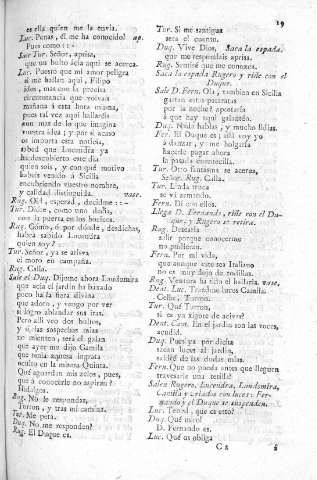 19
es ella quien me la envia.
Luc. Penas, él me ha conocido! ap.
Pues como : : -
Sale Tur. Señor, aprisa,
que un bulto ácia aqui se acerca.
Luc. Puesto que mi amor peligra
si me hallan aqui, Filipo
idos, mas con la precisa
circunstancia que volvais
mañana á esta hora misma,
pues tal vez aqui hallaréis
mas de lo que imagina
vuestra idea; y por si acaso
os importa esta noticia,
sabed que Lucendra ya
ha descubierto este dia
quien sois, y con qué motivo
habeis venido á Sicilia
encubriendo vuestro nombre,
y calidad distinguida. vase.
Rug. Oíd, esperad, decidme : : -
Tur. Dióte, como uno daña,
con la puerta en los hocicos.
Rug. Cómo, ó por dónde, desdichas,
habrá sabido Lucendra
quien soy?
Tur. Señor, ya se aviva
el moro en campaña.
Rug. Calla.
Sale el Duq. Dijome ahora Laudomira
que ácia el jardin ha baxado
poco ha la fiera divina
que adoro, y vengo por ver
si logro ablandar sus iras.
Pero alli veo dos bultos,
y si las sospechas mias
no mienten, será el galan
que ayer me dijo Camila
que tenia aquesta ingrata
oculto en la misma Quinta.
Qué aguardan mis zelos, pues,
que á conocerle no aspiran?
Hidalgos.
Rug. No le respondas,
Turron, y tras mi camina.
Tur. Me petá.
Duq. No me responden?
Rug. El Duque es.
Tur. Si me santigua
será el cuento.
Duq. Vive Dios, Saca la espada.
que me respondais aprisa.
Rug. Sentiré que me conozca.
Saca la espada Rugero y riñe con el
Duque.
Sale D. Fern. Ola, tambien en Sicilia
gastan estas pataratas
por la noche? apostaria
á que hay aqui galantéo.
Duq. Nada hablas, y mucho lidias.
Fer. El Duque es; allá voy yo
á danzar, y me holgaria
hacerle pagar ahora
la pasada cuentecilla.
Tur. Otro fantasma se acerca,
Señor. Rug. Calla.
Tur. Linda troca
se vá armando.
Fern. Dí con ellos.
Llega D. Fernando, riñe con el Du-
que, y Rugero se retira.
Rug. Desearia
salir porque conocernos
no pudieran.
Fern. Por mi vida,
que aunque este sea Italiano
no es muy flojo de rodillas.
Rug. Ventura ha sido el hallarla. vase.
Dent. Luc. Traedme luces Camila.
Celio, Turron.
Tur. Qué Turron,
si es ya xigote de acivar?
Dent. Cam. En el jardin son las voces,
acudid.
Duq. Pues ya por dicha
sacan luces al jardin,
saldré de las dudas mias.
Fern. Que no pueda antes que lleguen
travesarle una tetilla!
Salen Rugero, Lucendra, Laudomira,
Camila y criados con luces: Fer-
nando y el Duque se suspenden.
Luc. Tened, que es esto?
Duq. Qué miro!
D. Fernando es.
Luc. Qué os obliga
C 2
á